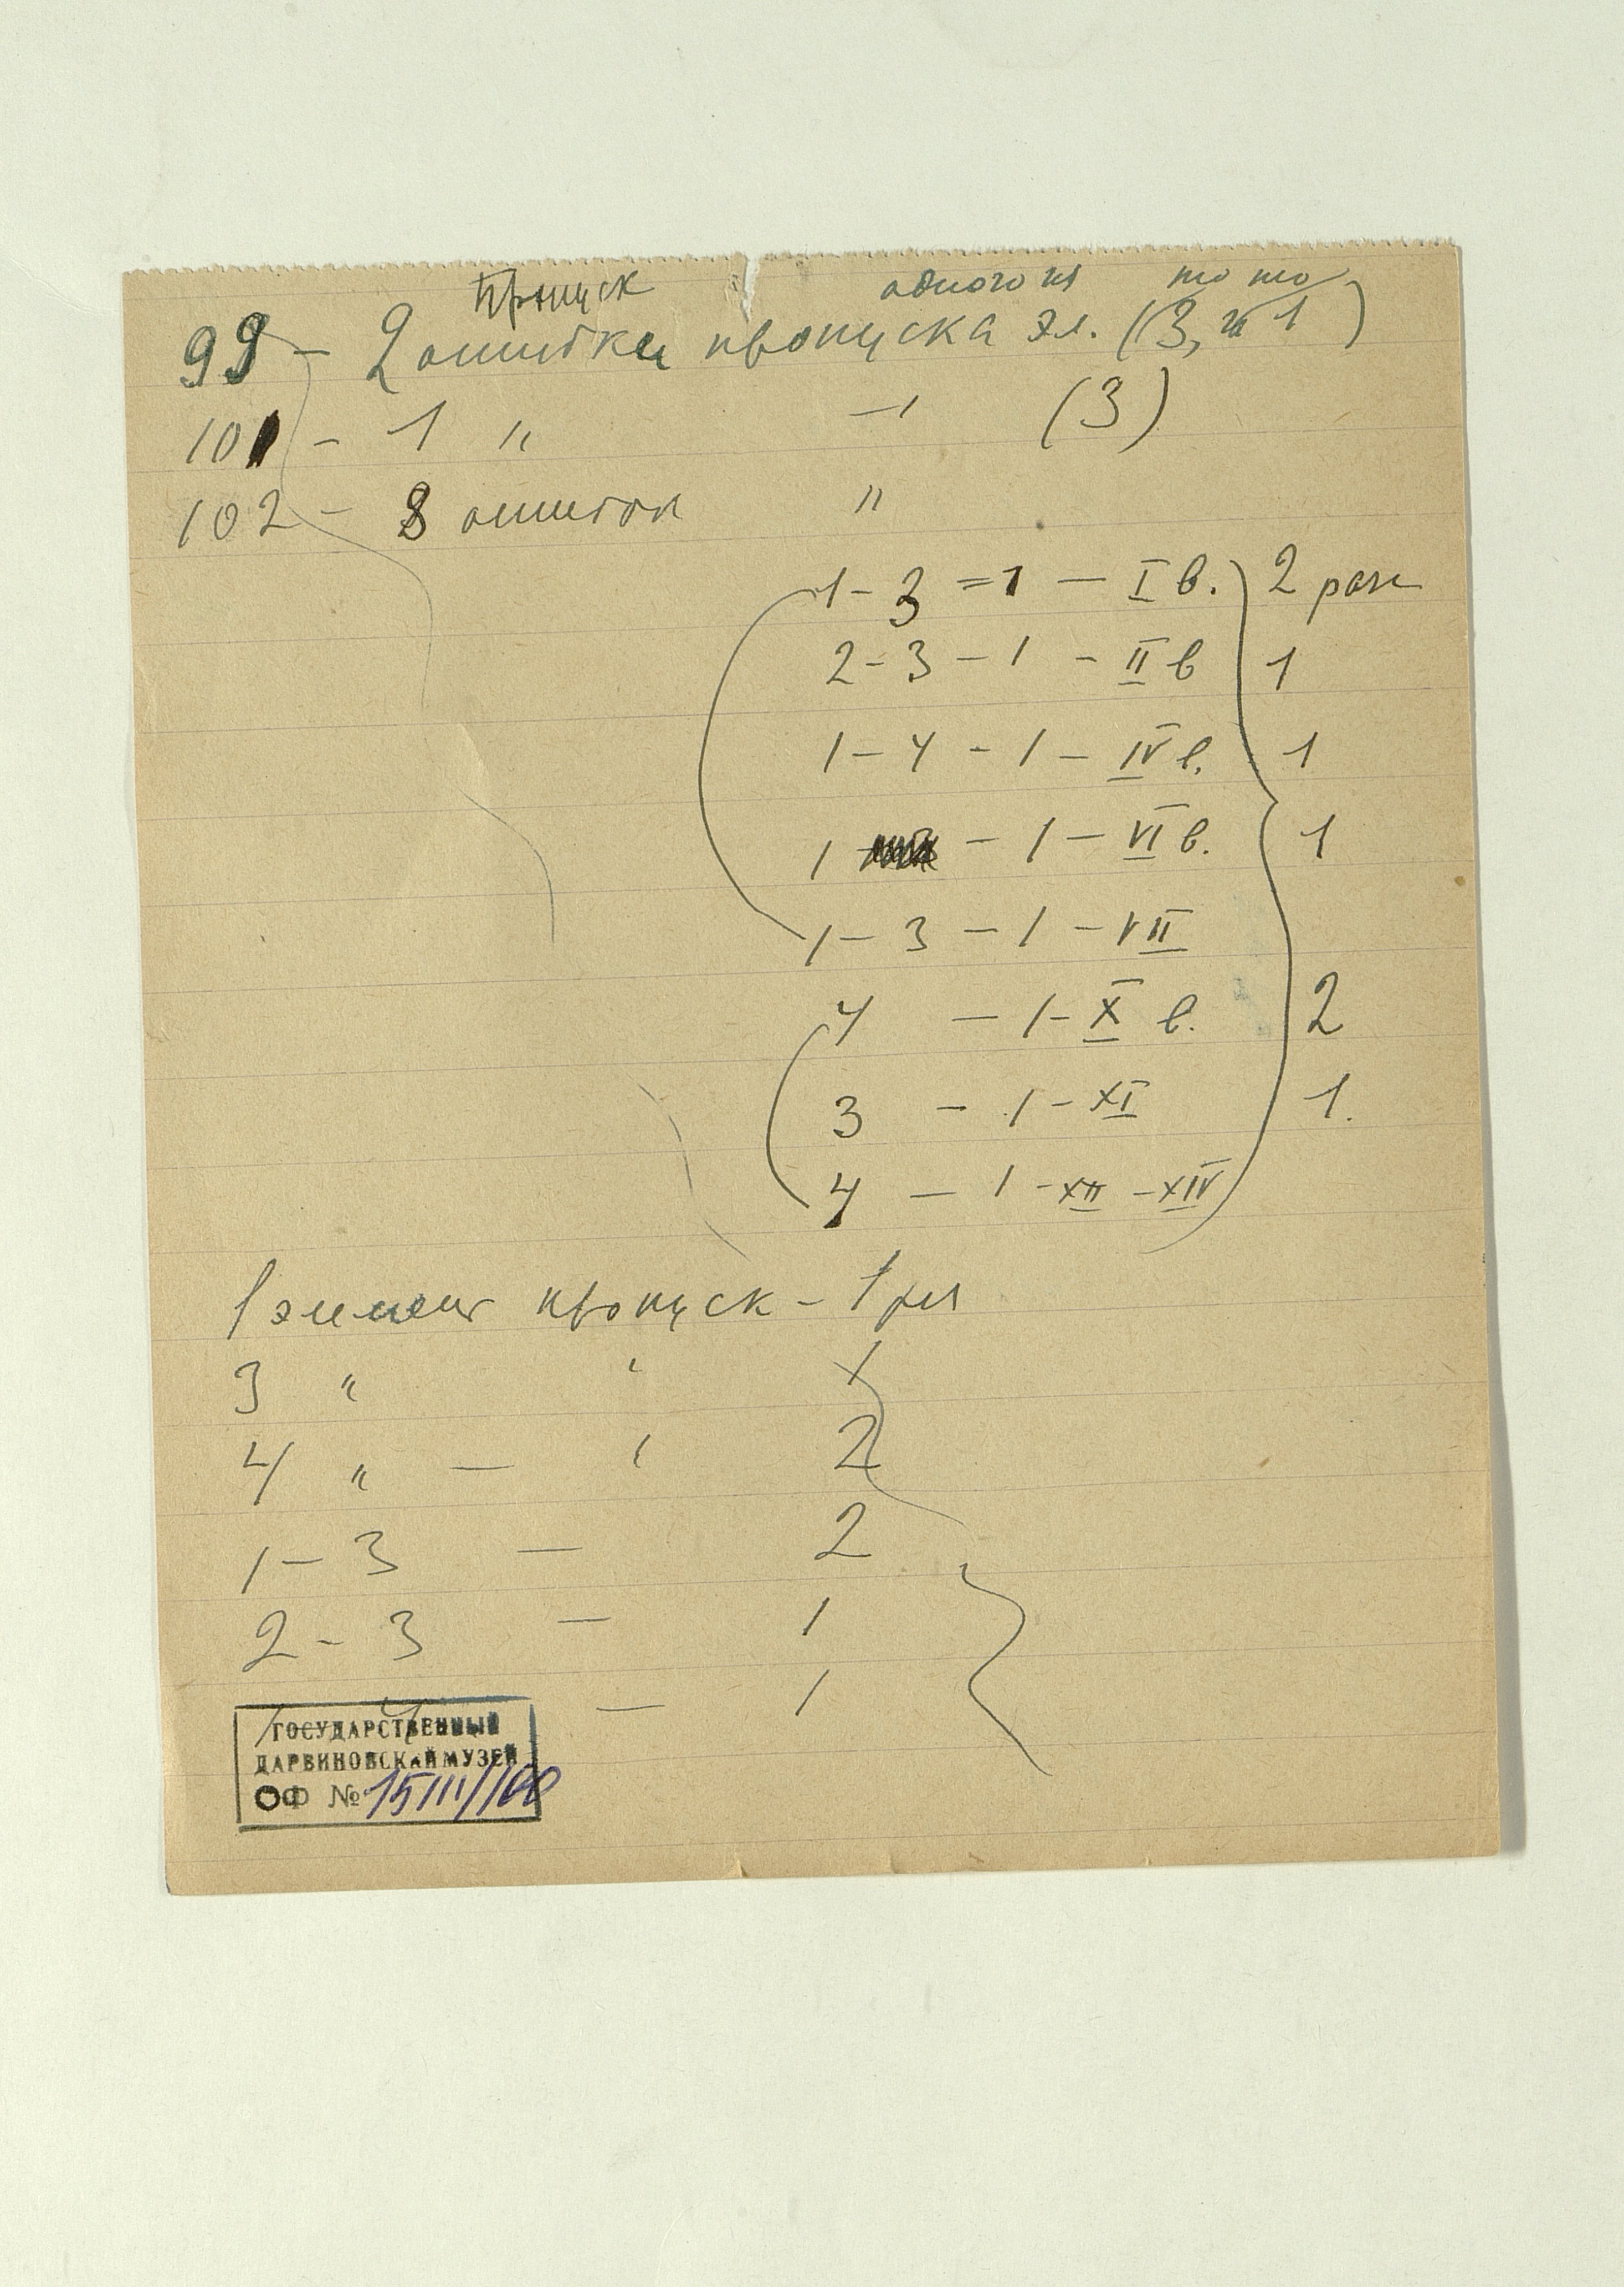 Пропуск одного из то то
99 – 2 ошибки пропуска эл. (3, и 1)
101 – 1 " – " (3)
102 – 8 ошибок "
1 – 3 = 1 — I в. 2 раза
2 – 3 – 1 – II в 1
1 – 4 – 1 – IV в. 1
1 – 1 – VI в. 1
1 – 3 – 1 – VII
4 – 1 – X в. 2
3 – 1 – XI 1.
4 – 1 – XII – XIV
1 элемент пропуск – 1 раз
3 " " 1
4 " — " 2
1 – 3 — 2
2 – 3 — 1
1 – 4 — 1
ГОСУДАРСТВЕННЫЙ
ДАРВИНОВСКИЙ МУЗЕЙ
ОФ № 15111/100